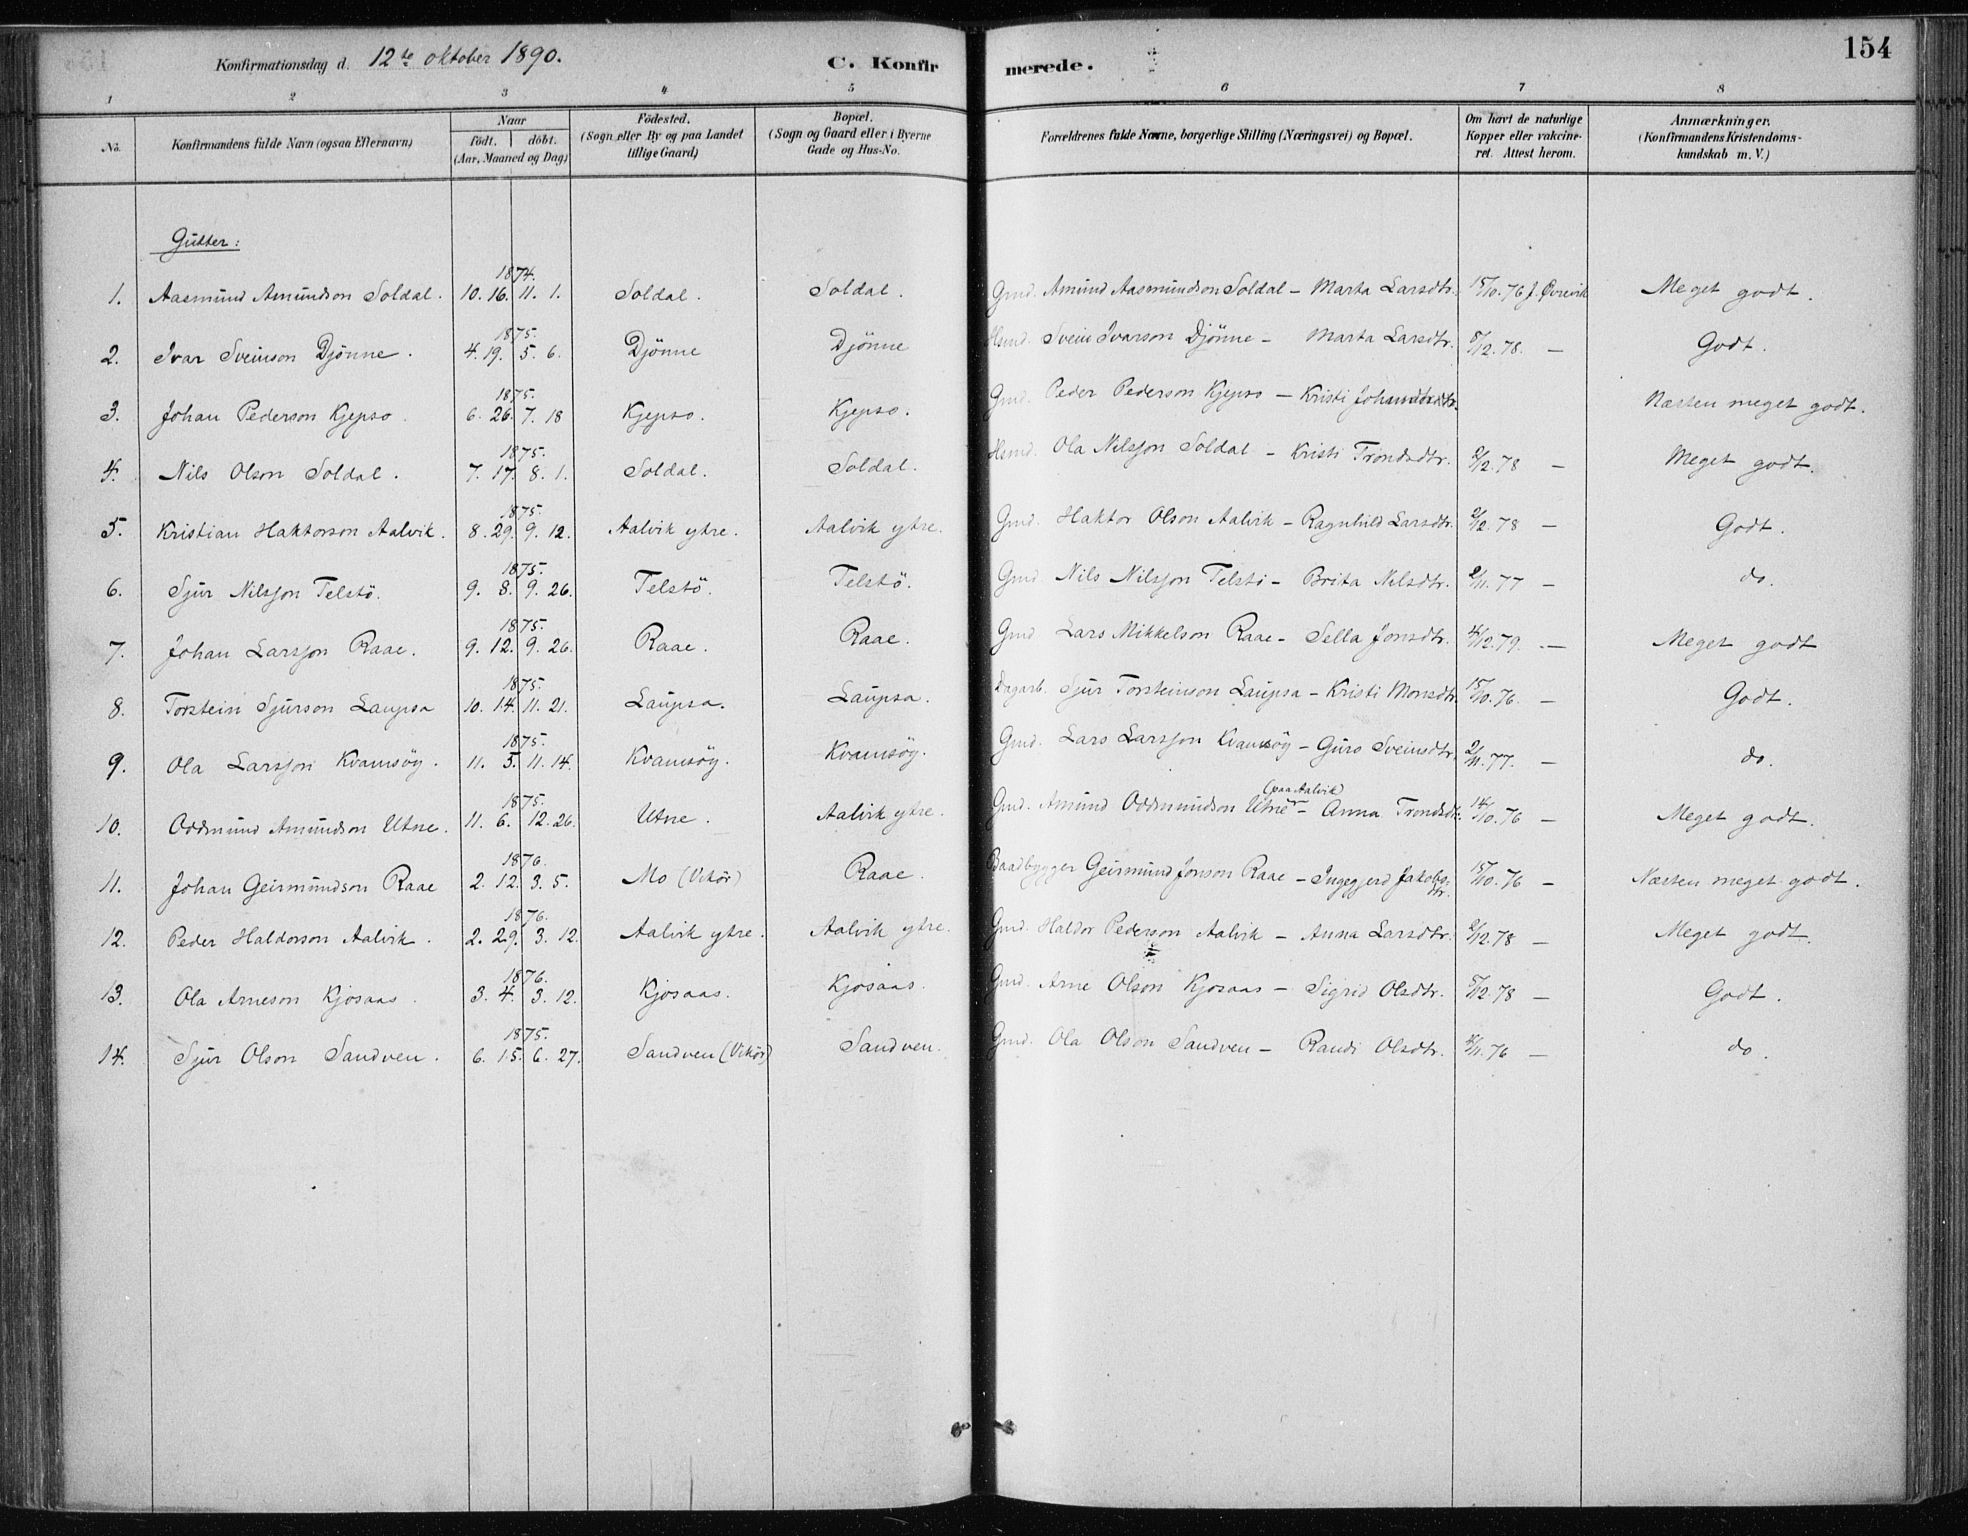 Konfirmationsdag d. 12te oktober 1890. C. Konfirmerede. 154
1 2 3 4 5 6 7 8
No. Konfirmandens fulde Navn (ogsaa Efternavn) Naar födt. döbt. (Aar, Maaned og Dag) Födested. (Sogn eller By og paa Landet tillige Gaard) Bopæl. (Sogn og Gaard eller i Byerne Gade og Hus-No. Forældrenes fulde Navne, borgerlige Stilling (Næringsvei) og Bopæl. Om havt de naturlige Kopper eller vakcineret. Attest herom. Anmærkninger. (Konfirmandens Kristendomskundskab m. V.)
Gutter:
1874.
1. Aasmund Amundson Soldal. 10. 16. 11. 1. Soldal. Soldal. Gmd. Amund Aasmundson Soldal – Marta Larsdtr. 15/10. 76 J. Øvrevik Meget godt.
1875.
2. Ivar Sveinson Djönne. 4. 19. 5. 6. Djönne Djönne Hsmd. Svein Ivarson Djönne – Marta Larsdtr. 5/12. 78. – Godt.
1875.
3. Johan Pederson Kjepso. 6. 26. 7. 18 Kjepso. Kjepso. Gmd. Peder Pederson Kjepso – Kristi Næsten meget godt.
1875.
4. Nils Olson Soldal. 7. 17. 8. 1. Soldal. Soldal. Hsmd. Ola Nilsson Soldal – Kristi Trondsdtr. 2/12. 78 – Meget godt.
1875.
5. Kristian Haktorson Aalvik. 8. 29. 9. 12. Aalvik ytre. Aalvik ytre. Gmd. Haktor Olson Aalvik – Ragnhild Larsdtr. 2/12. 78 – Godt.
1875.
6. Sjur Nilsson Telstö. 9. 8. 9. 26. Telstö. Telstö. Gmd. Nils Nilsson Telstö – Brita Nilsdtr. 2/11. 77 – do.
1875.
7. Johan Larsson Raae. 9. 12. 9. 26. Raae. Raae. Gmd Lars Mikkelson Raae – Sella Jonsdtr. 4/12. 79. – Meget godt
1875.
8. Torstein Sjurson Laupsa 10. 14. 11. 21. Laupsa. Laupsa. Dagarb. Sjur Torsteinson Laupsa – Kristi Monsdtr. 15/10. 76. – Godt.
1875.
9. Ola Larsson Kvamsöy. 11. 5. 11. 14. Kvamsöy. Kvamsöy. Gmd. Lars Larsson Kvamsöy – Guro Sveinsdtr. 2/11. 77. – do.
1875. (paa Aalvik)
10. Oddmund Amundson Utne. 11. 6. 12. 26. Utne. Aalvik ytre. Gmd. Amund Oddmundson Utne – Anna Trondsdtr. 14/10. 76 – Meget godt.
1876.
11. Johan Geirmundson Raae 2. 12. 3. 5. Mo (Vikör) Raae. Baadbygger Geirmund Jonson Raae – Ingegjerd Jakobsdtr. 15/10. 76 – Næsten meget godt.
1876.
12. Peder Haldorson Aalvik. 2. 29. 3. 12. Aalvik ytre. Aalvik ytre. Gmd. Haldor Pederson Aalvik – Anna Larsdtr. 2/12. 78 – Meget godt.
1876.
13. Ola Arneson Kjosaas. 3. 4. 3. 12. Kjosaas. Kjosaas. Gmd. Arne Olson Kjosaas – Sigrid Olsdtr. 5/12. 78 – Godt.
1875.
14. Sjur Olson Sandven. 6. 15. 6. 27. Sandven (Vikör) Sandven. Gmd. Ola Olson Sandven – Randi Olsdtr. 76 – do.